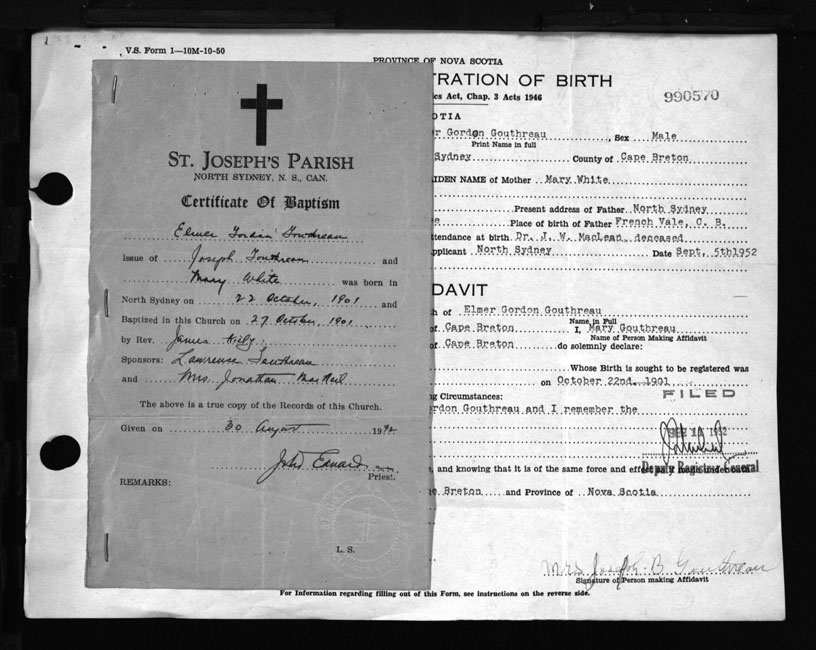 V.S. Form 1—10M-10-50
PROVINCE OF NOVA SCOTIA
TRATION OF BIRTH
es Act, Chap. 3 Acts 1946
990570
OTIA
r Gordon Gouthreau, Sex Male
Print Name in full
Sydney County of Cape Breton
IDEN NAME of Mother Mary White
Present address of Father North Sydney
Place of birth of Father French Vale, C. B.
ttendance at birth Dr. J. W. MacLean, deceased
pplicant North Sydney Date Sept. 5th1952
DAVIT
h of Elmer Gordon Gouthreau
Name in Full
of Cape Breton I, Mary Gouthreau
Name of Person Making Affidavit
of Cape Breton do solemnly declare:
Whose Birth is sought to be registered was
on October 22nd. 1901
g Circumstances:
FILED
ordon Gouthreau and I remember the
Deputy Registrar General
, and knowing that it is of the same force and
e Breton and Province of Nova Scotia
Mrs Joseph B Gouthreau
Signature of Person making Affidavit
For Information regarding filling out of this Form, see instructions on the reverse side.
ST. JOSEPH'S PARISH
NORTH SYDNEY, N. S., CAN.
Certificate Of Baptism
Elmer Gordon Gouthreau
issue of Joseph Gouthreau and
Mary White was born in
North Sydney on 22 October, 1901 and
Baptized in this Church on 27 October, 1901
by Rev. James Kiely
Sponsors: Lawrence Gouthreau
and Mrs. Jonathan MacNeil
The above is a true copy of the Records of this Church.
Given on 30 August 19
John
Priest.
REMARKS:
L. S.